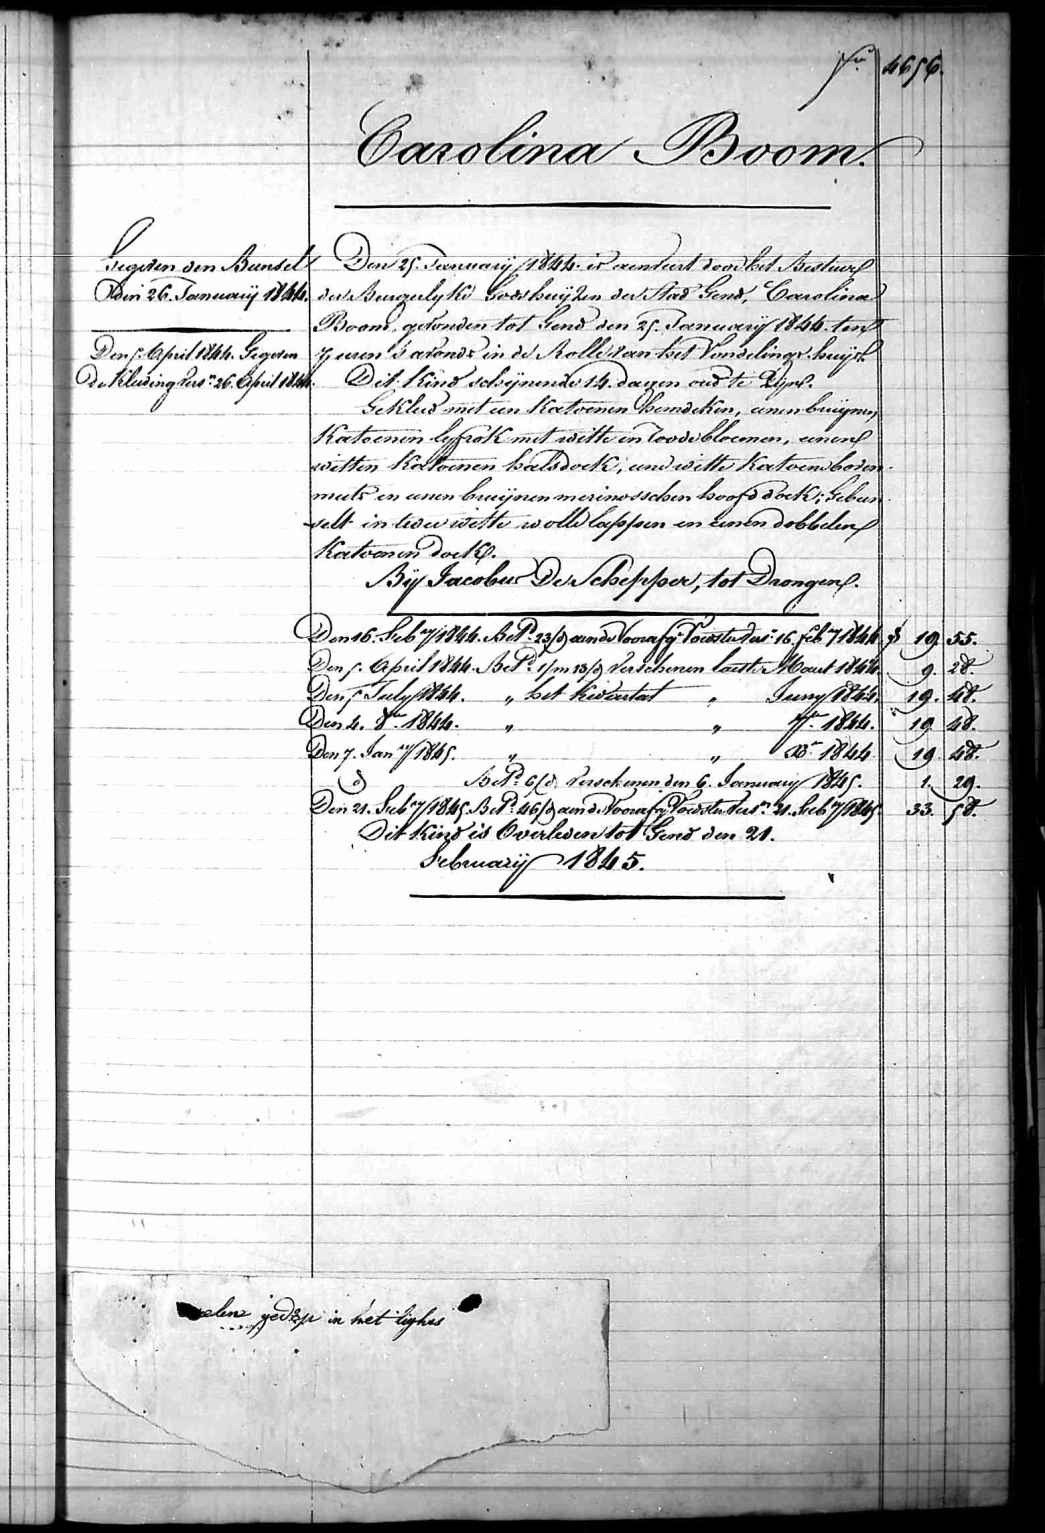 4656.
Carolina Boom.
Gegeven den Bunsel
den 26. January 1844.
Den 5. April 1844. Gegeven
de Kleeding vers.n 26. April 1844.
Den 25. January 1844. is aenveert door het Bestuer
der Burgerlyke Godshuyzen der Stad Gend, Carolina
Boom, gevonden tot Gend den 25. January 1844. ten
7 uren 's avonds in de Rolle van het Vondelings-huys.
Dit Kind schynende 14. dagen oud te Zyn.
Gekleed met een Katoenen hemdeken, eenen bruynen
Katoenen lyfrok met witte en roode bloemen, eenen
witten Katoenen halsdoek, eene witte Katoene boven
muts en eenen bruynen merinosschen hoofddoek; Gebun
selt in twee witte wolle lappen en eenen dobbelen
Katoenen doek.
By Jacobus De Schepper, tot Drongen.
Den 16. Feb.ry 1844. Bet.d 23/d aen de Voorafg.e Voedster vers.n 16. Feb.y 1844. 19. 55.
Den 5. April 1844. Bet.d 1/m 13/d Verschenen laeste Maert 1844. 9. 28.
Den 5 July 1844. " het Kwartael " Juny 1844. 19. 48.
Den 4. 8.bre 1844. " " 7.bre 1844. 19 48.
Den 7. Jan.ry 1845. " " X.br 1844 19 48.
d Bet.d 6/d Verschenen den 6. January 1845. 1. 29.
Den 21. Feb.ry 1845. Bet.d 46/d aen de Voorafg. Voedster vers.n 21. Feb.ry 1845. 33. 58.
Dit Kind is Overleden tot Gend den 21.
February 1845.
in het